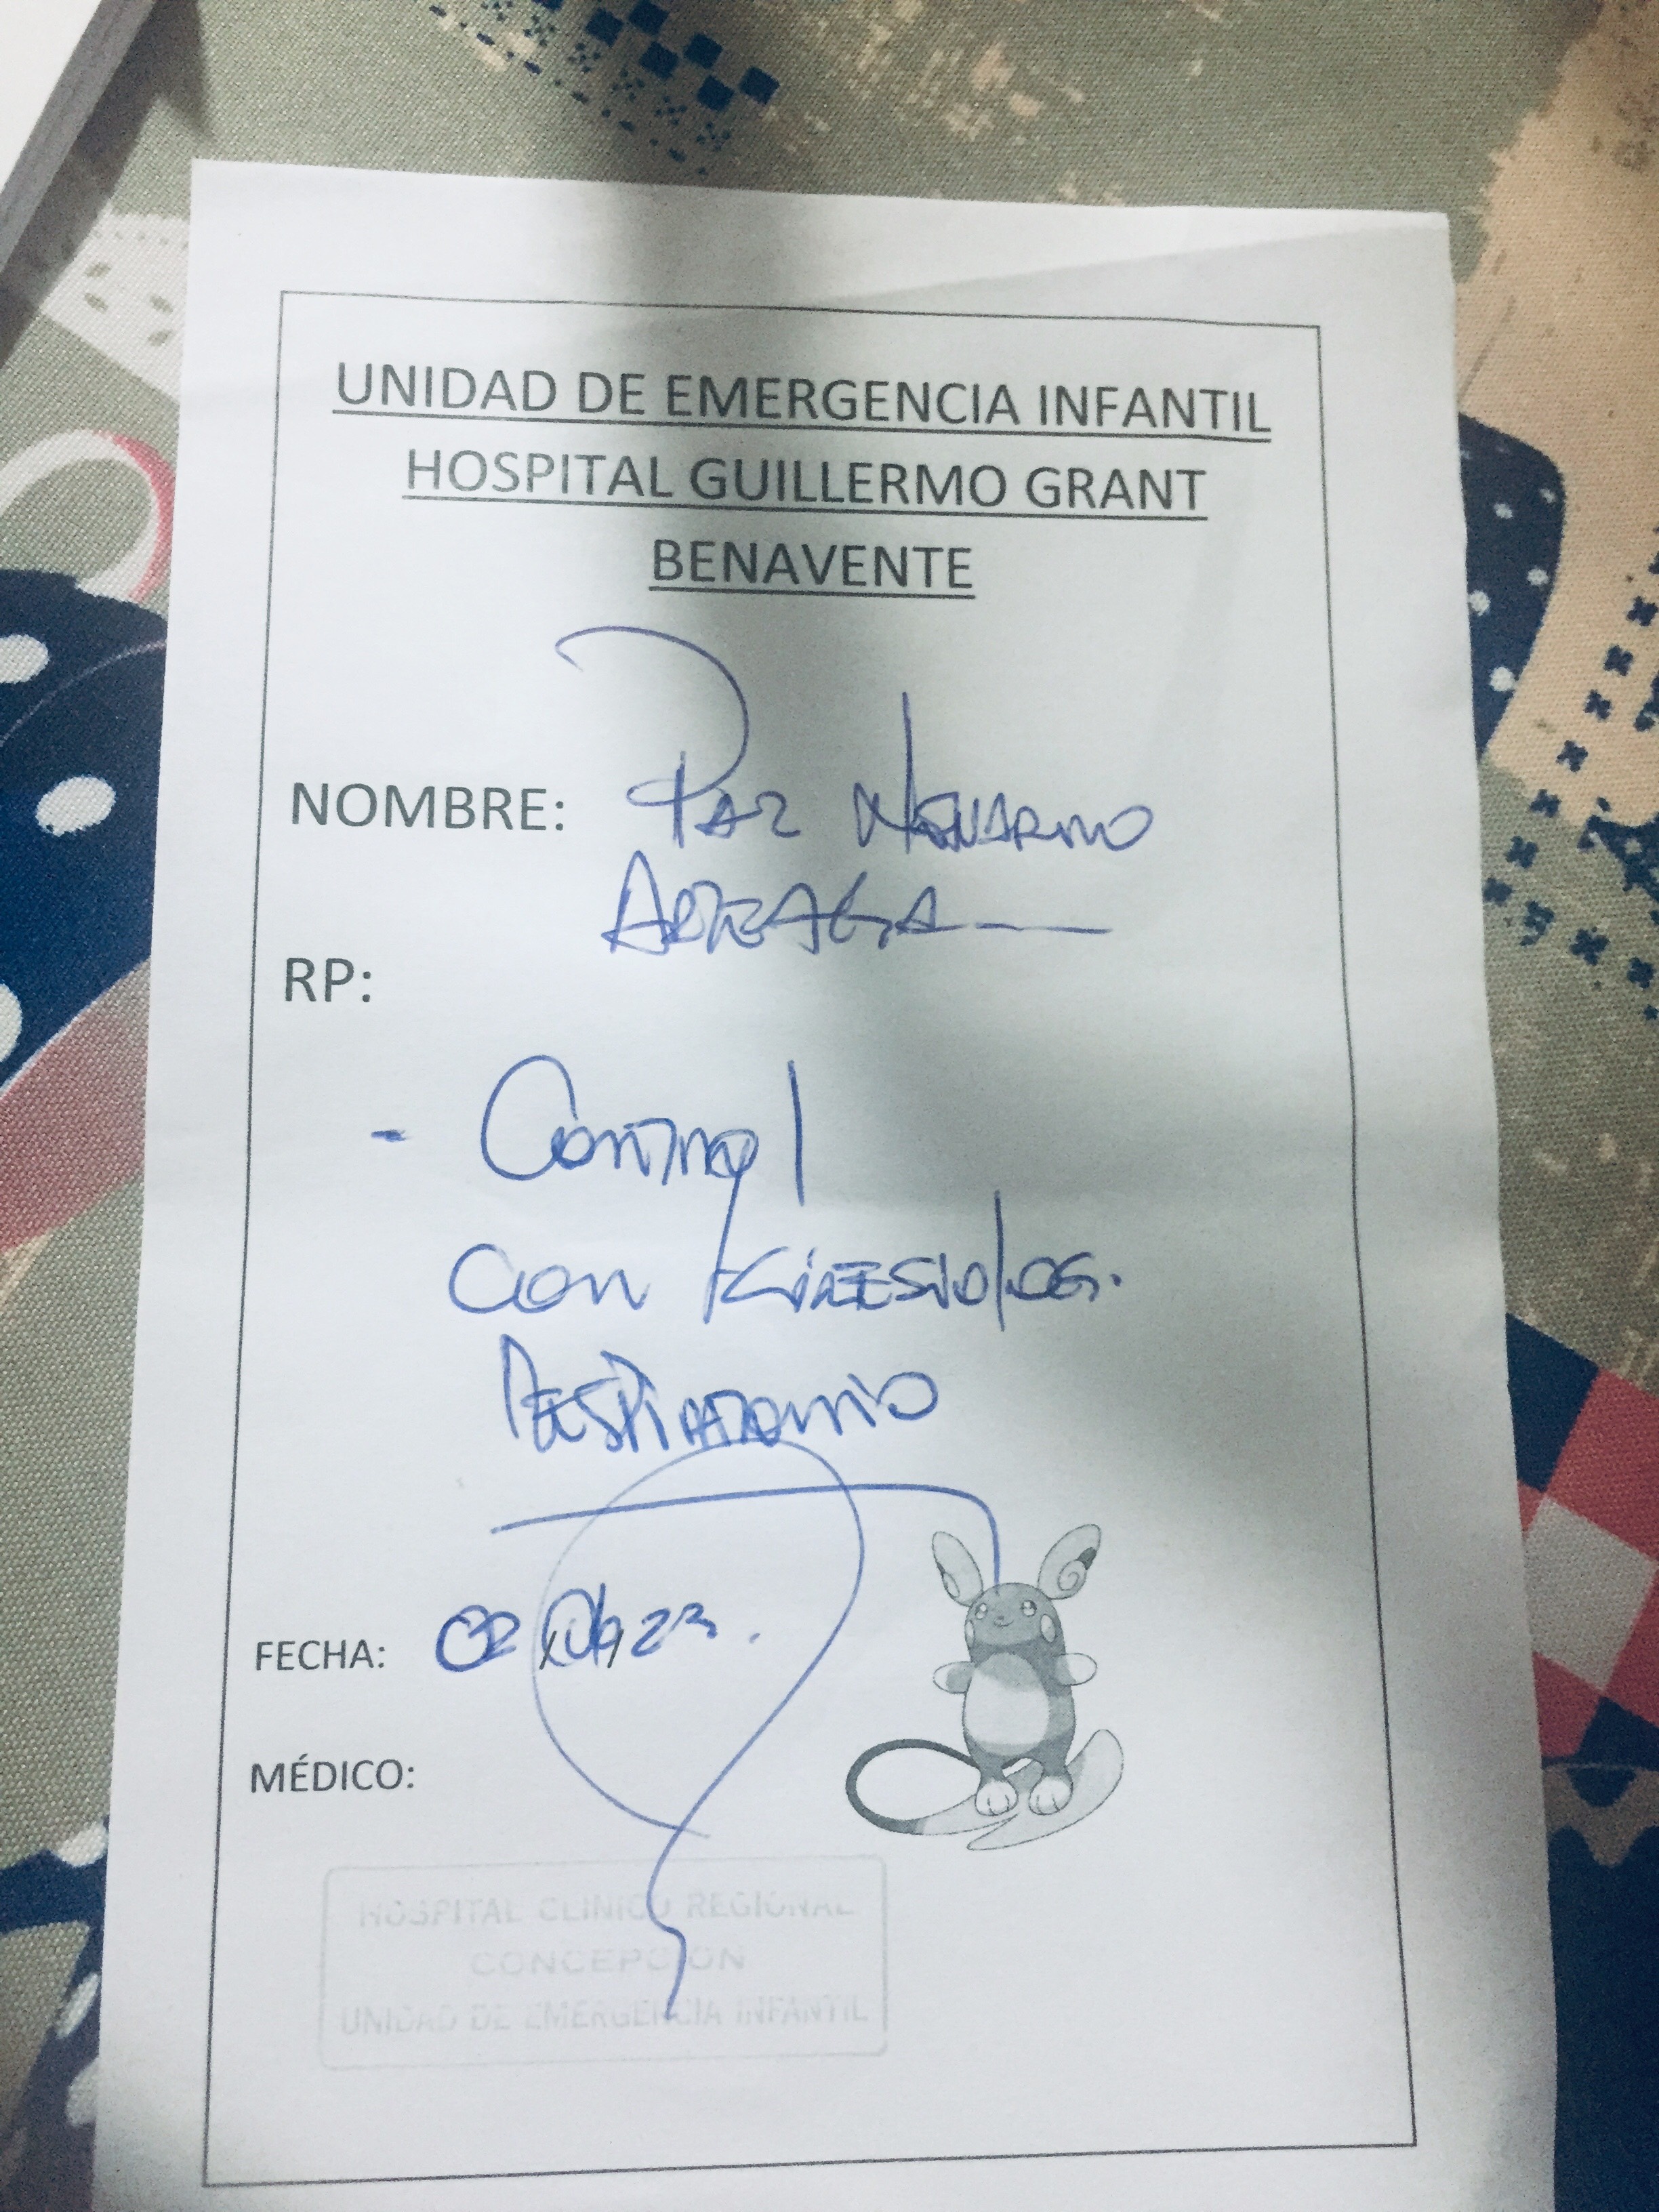 UNIDAD DE EMERGENCIA INFANTIL
HOSPITAL GUILLERMO GRANT
BENAVENTE
NOMBRE: PAZ
ARZEAGA
RP:
- Control
con KINESIOLOG.
RESPIRATORIO
FECHA: 02 23.
MÉDICO:
HOSPITAL CLINICO REGIONAL
CONCEPCION
UNIDAD DE EMERGENCIA INFANTIL